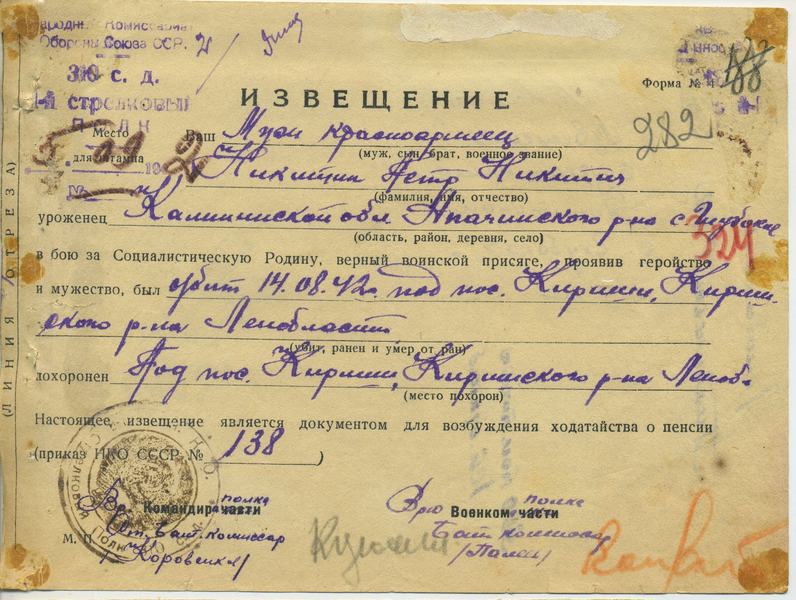 Народный Комиссариат
Обороны Союза ССР.
310 с. д.
1-й стрелковый
Полк
Форма № 4
188
282
ИЗВЕЩЕНИЕ
Место
для штампа
№
Ваш Муж красноармеец
(муж, сын, брат, военное звание)
Никитин Петр Никитич
(фамилия, имя, отчество)
уроженец Калининской обл р-на с.
(область, район, деревня, село)
324
в бою за Социалистическую Родину, верный воинской присяге, проявив геройство
и мужество, был убит 14.08.42г. под пос. Кириши, Кириш-
ского р-на Ленобласти
(убит, ранен и умер от ран)
похоронен Под пос. Кириши, Киришского р-на Леноб-
(место похорон)
Настоящее извещение является документом для возбуждения ходатайства о пенсии
(приказ НКО СССР № 138 )
Командир части полка
Военком части полка
М. П.
Бат комиссар
(ЛИНИЯ ОТРЕЗА)